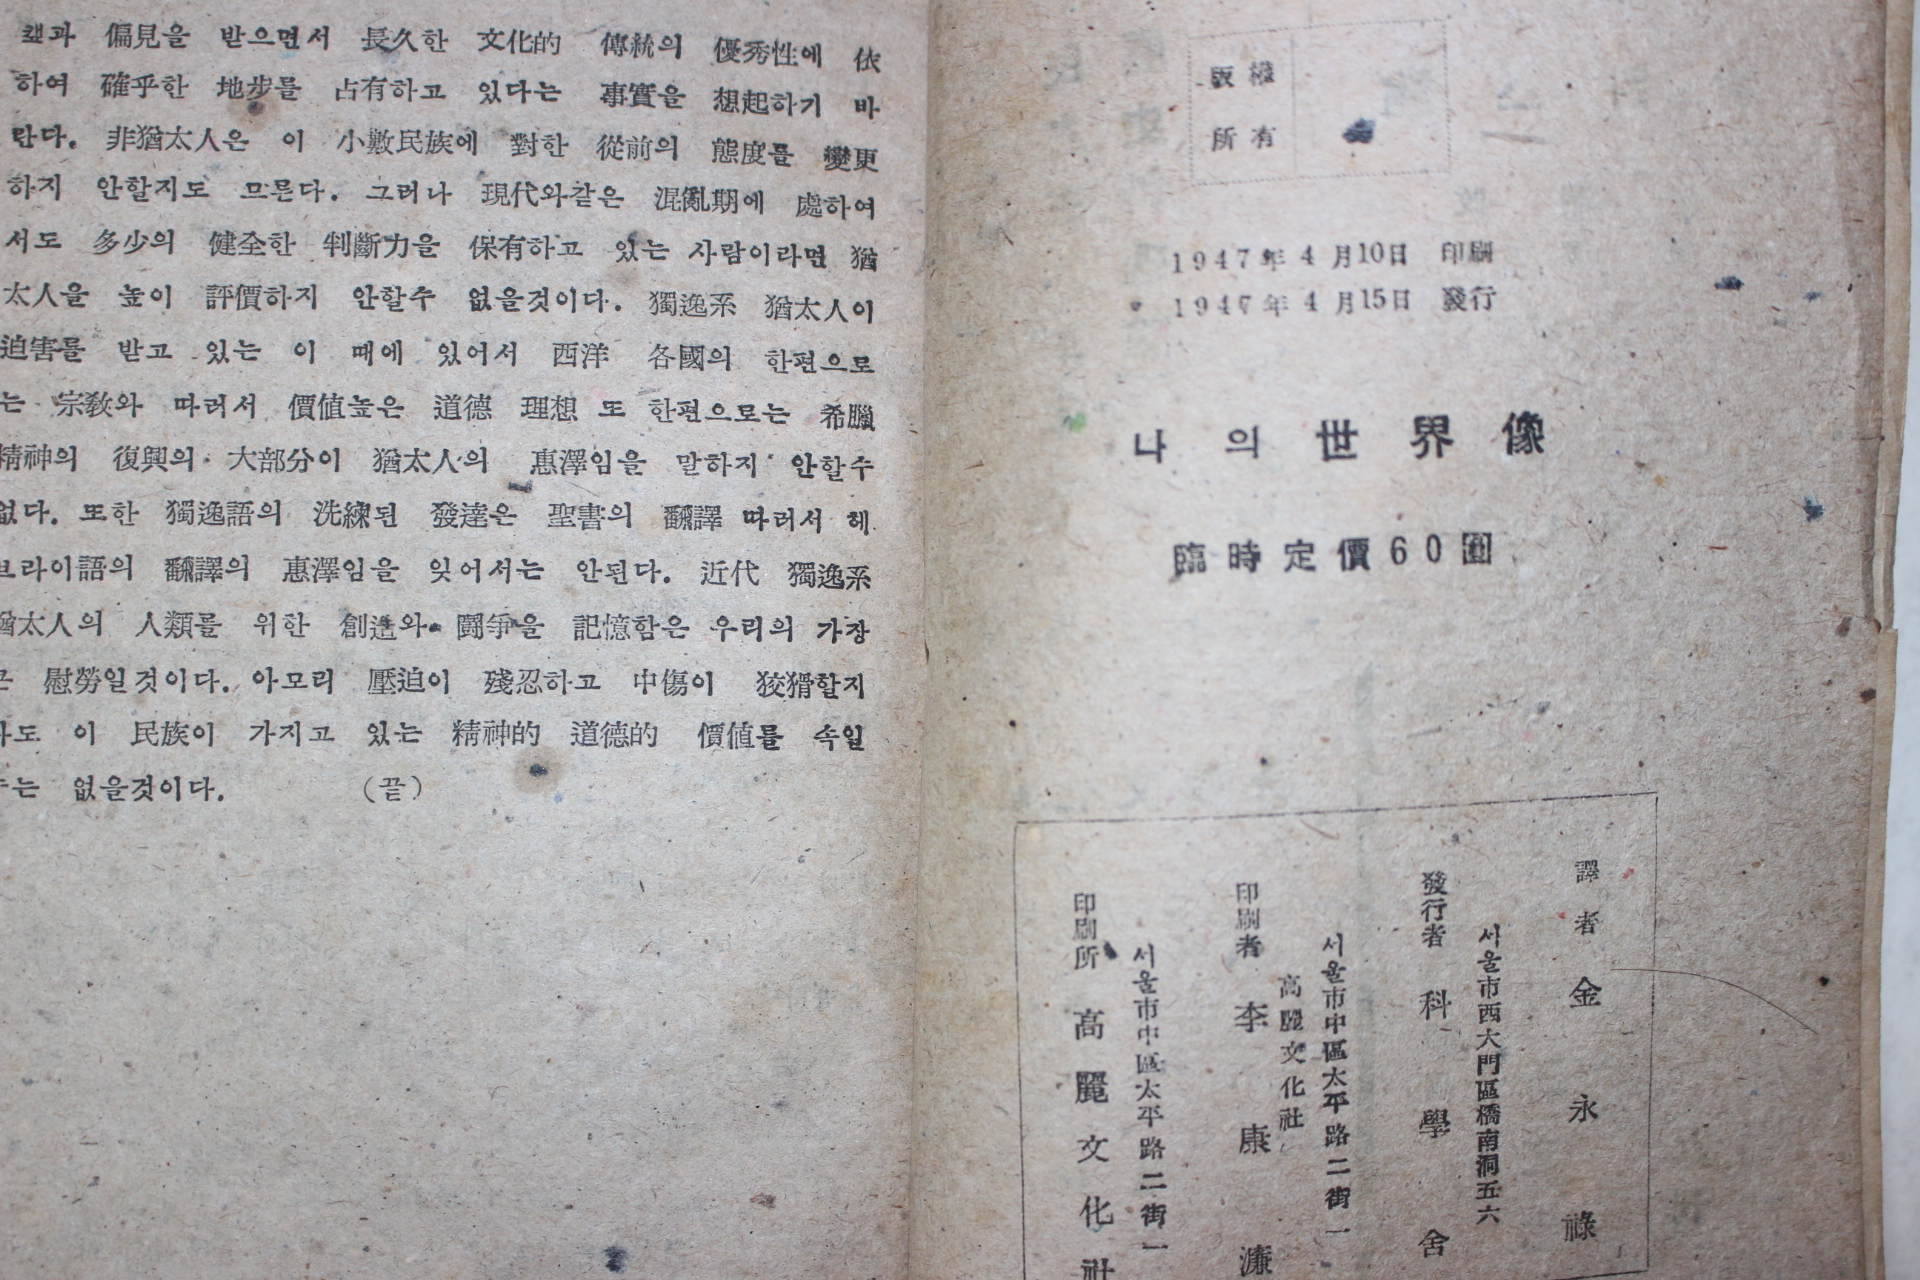 偏見을 받으면서 長久한 文化的 傳統의 優秀性에 依
하여 確乎한 地步를 占有하고 있다는 事實을 想起하기 바
란다. 非猶太人은 이 小數民族에 對한 從前의 態度를 變更
하지 안할지도 므른다. 그러나 現代와같은 混亂期에 處하여
서도 多少의 健全한 判斷力을 保有하고 있는 사람이라면 猶
太人을 높이 評價하지 안할수 없을것이다. 獨逸系 猶太人이
迫害를 받고 있는 이 때에 있어서 西洋 各國의 한편으로
는 宗敎와 따러서 價値높은 道德 理想 또 한편으로는 希臘
精神의 復興의 大部分이 猶太人의 惠澤임을 말하지 안할수
없다. 또한 獨逸語의 洗練된 發達은 聖書의 飜譯 따러서 헤
브라이語의 飜譯의 惠澤임을 잊어서는 안된다. 近代 獨逸系
猶太人의 人類를 위한 創造와 鬪爭을 記憶함은 우리의 가장
慰勞일것이다. 아모리 壓迫이 殘忍하고 中傷이 狡猾할지
라도 이 民族이 가지고 있는 精神的 道德的 價値를 속일
수는 없을것이다. (끝)
版權
所有
1947年 4月10日 印刷
1947年 4月15日 發行
나의 世界像
臨時定價60圓
譯者 金永祿
서울市西大門區橋南洞五六
發行者 科學舍
서울市中區太平路二街一
高麗文化社
印刷者 李康濂
서울市中區太平路二街一
印刷所 高麗文化社